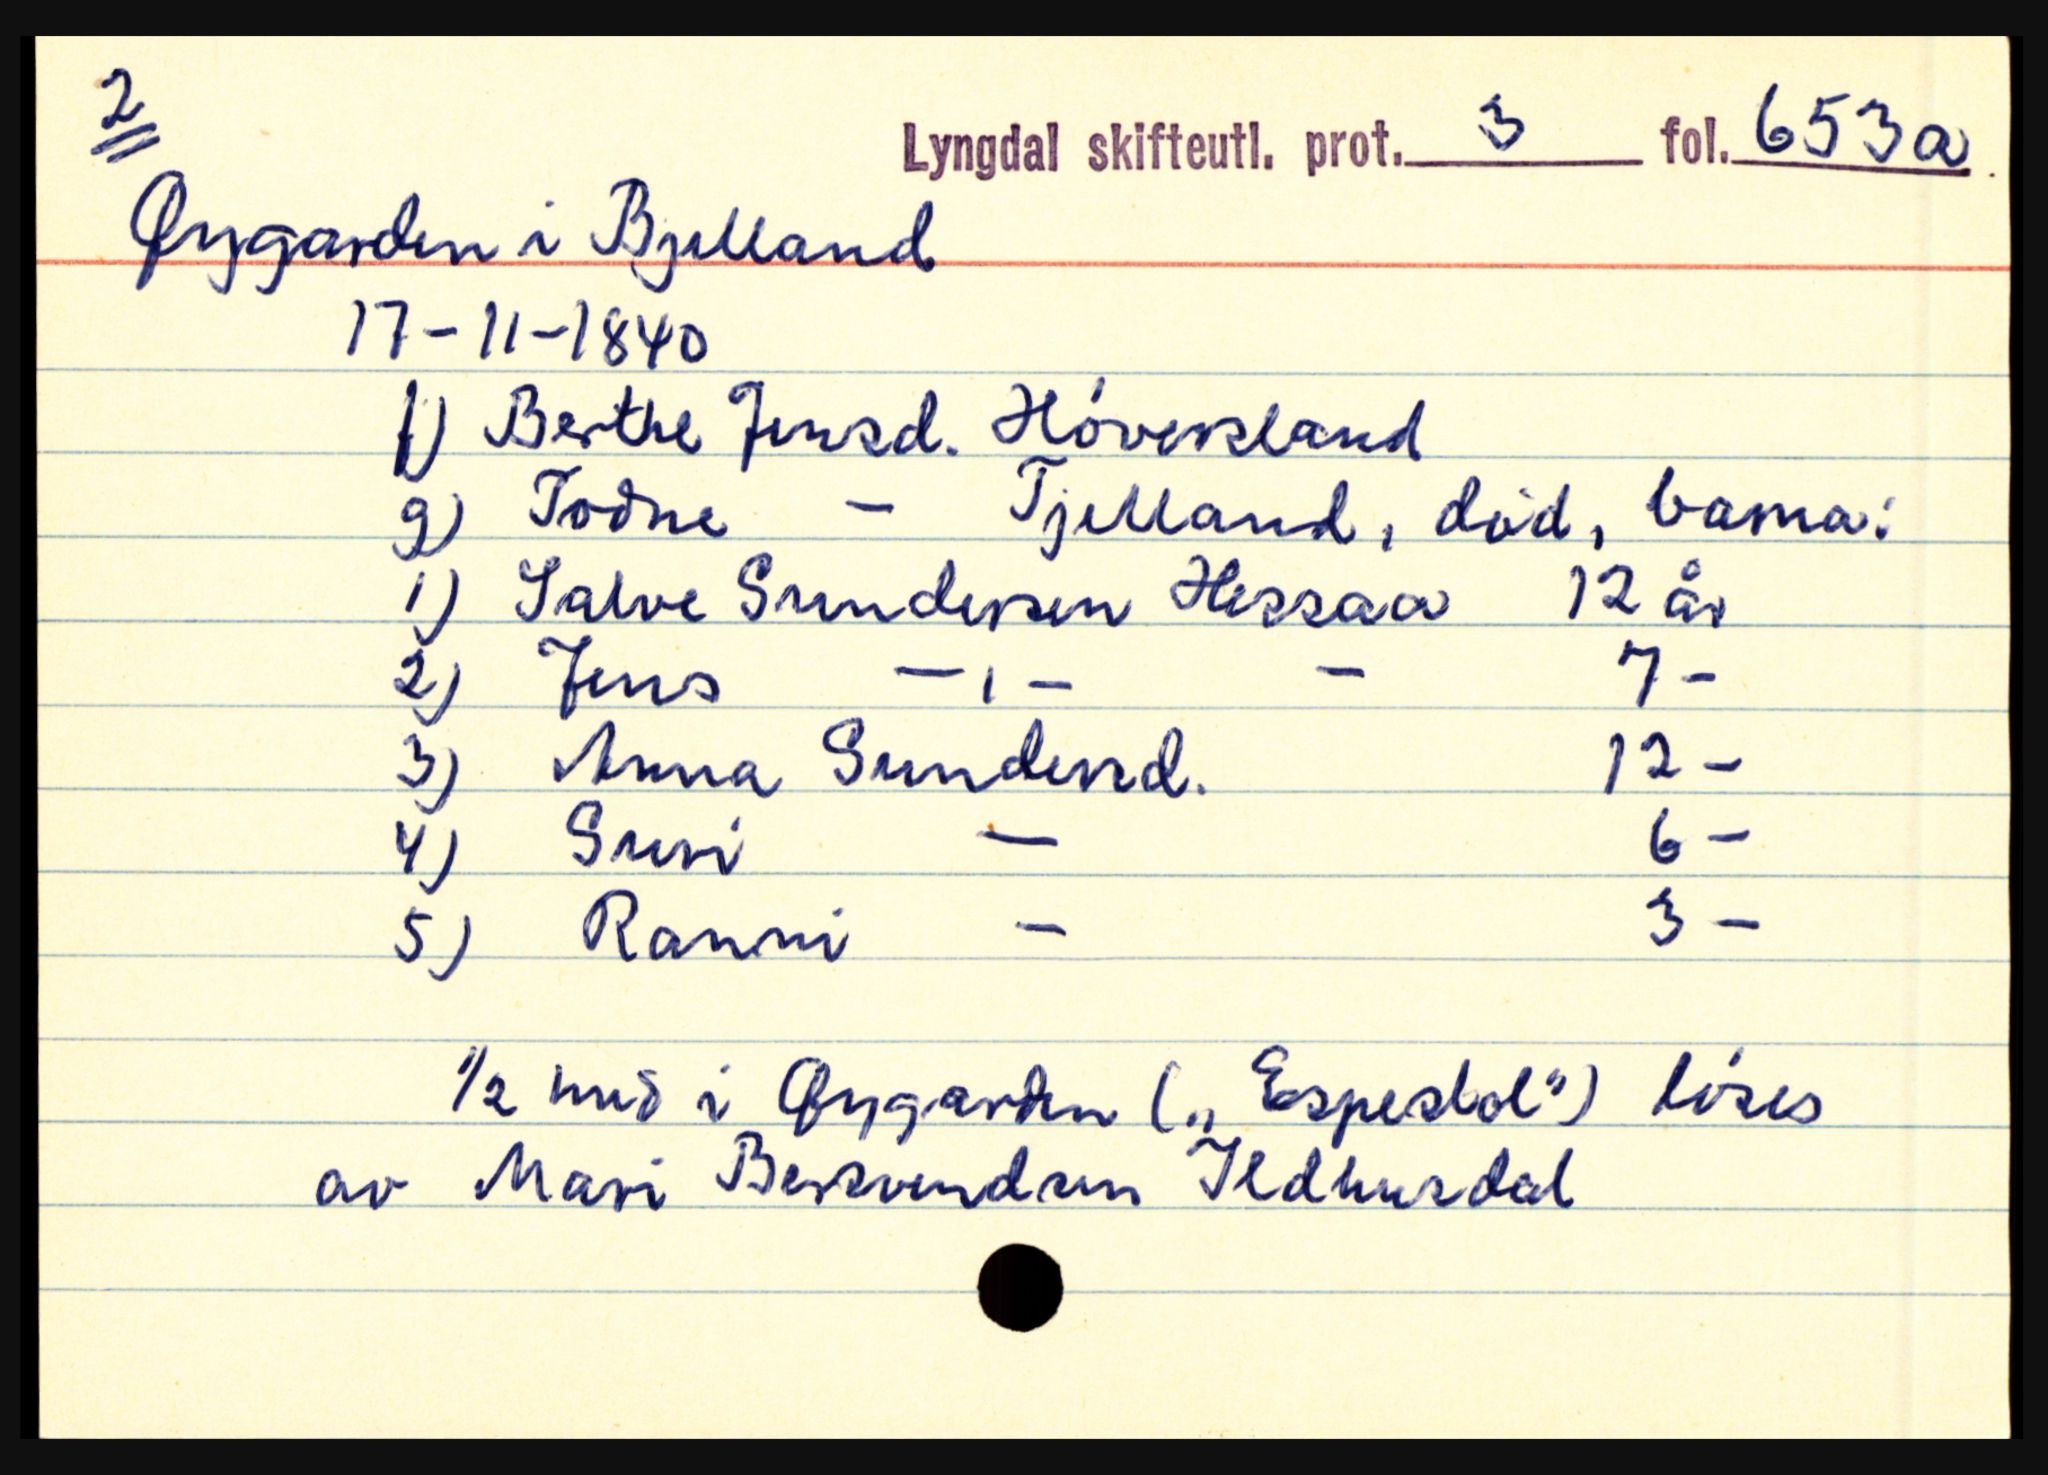 2
Lyngdal skifteutl. prot. 3 fol. 653a.
Øygarden i Bjelland
17-11-1840
f) Berthe Jensd. Høversland
g) Todne - Tjelland, død, barna:
1) Salve Gundersen Hessaa 12 år
2) Jens -"- - 7 -
3) Anna Gundersd. 12 -
4) Guri - 6 -
5) Ranni - 3 -
1/2 hud i Øygarden („Espestol") løses
av Mari Bersvendsen Ildhusdal